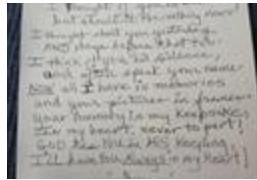 I thought of you
but that is nothing new!
I thought about you yesterday
AND days before that too.
I think of you in silence,
and often speak your name
Now all I have is memories
and your picture in frame
Your memory is my keepsake,
my heart, never to part!
GOD has you in HIS keeping
I'll have you Always in my Heart!